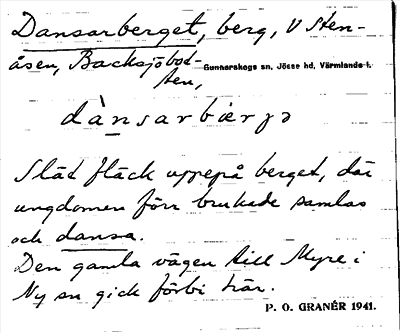 Dansarberget, berg, V Sten-
åsen, Backsjöbod-
ten,
Gunnarskogs sn, Jösse hd, Värmlands l.
dànsarbærjə
Slät fläck uppepå berget, där
ungdomen förr brukade samlas
och dansa.
Den gamla vägen till Myre i
Ny sn gick förbi här.
P. O. GRANÉR 1941.